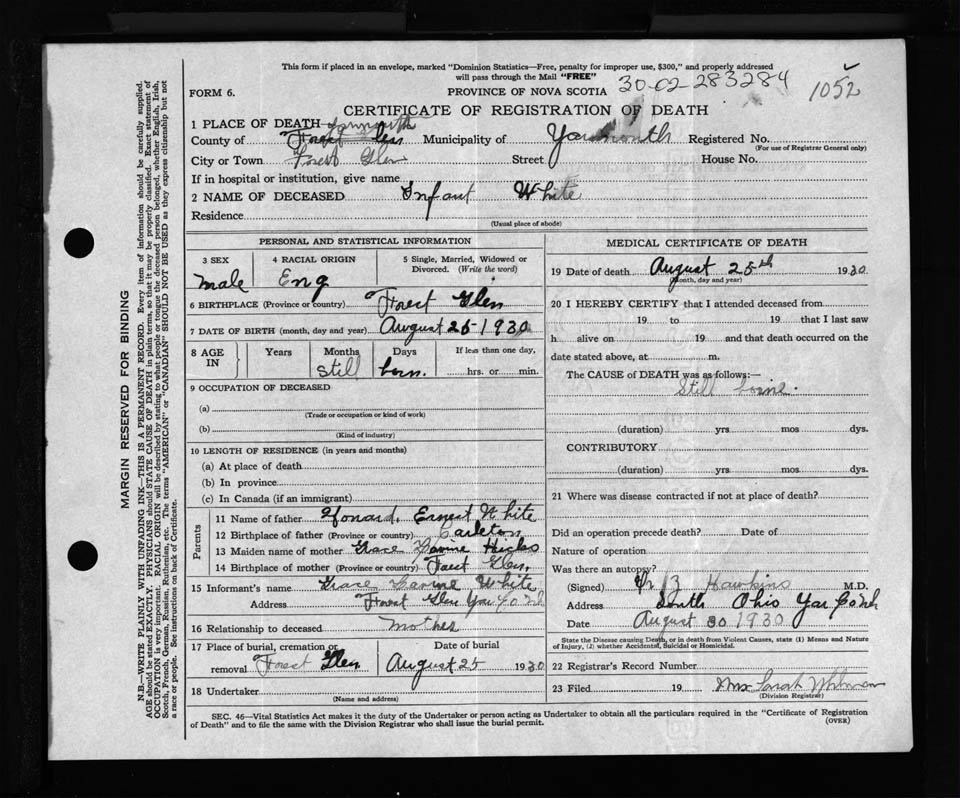 This form if placed in an envelope, marked "Dominion Statistics—Free, penalty for improper use, $300," and properly addressed
will pass through the Mail "FREE"
30-02-283284
1052
FORM 6.
PROVINCE OF NOVA SCOTIA
CERTIFICATE OF REGISTRATION OF DEATH
1 PLACE OF DEATH Yarmouth
County of Forest Glen Municipality of Yarmouth Registered No.
(For use of Registrar General only)
City or Town Forest Glen Street House No.
If in hospital or institution, give name
2 NAME OF DECEASED Infant White
Residence
(Usual place of abode)
PERSONAL AND STATISTICAL INFORMATION
3 SEX 4 RACIAL ORIGIN 5 Single, Married, Widowed or
Divorced. (Write the word)
male Eng
6 BIRTHPLACE (Province or country) Forest Glen
7 DATE OF BIRTH (month, day and year) August 25-1930
8 AGE IN Years Months Days If less than one day,
Still born. hrs. or min.
9 OCCUPATION OF DECEASED
(a)
(Trade or occupation or kind of work)
(b)
(Kind of industry)
10 LENGTH OF RESIDENCE (in years and months)
(a) At place of death
(b) In province
(c) In Canada (if an immigrant)
Parents
11 Name of father Ernest White
12 Birthplace of father (Province or country) Carleton
13 Maiden name of mother Grace Hicks
14 Birthplace of mother (Province or country) Forest Glen,
15 Informant's name Grace White
Address Forest Glen Yar Co
16 Relationship to deceased mother
17 Place of burial, cremation or Date of burial
removal Forest Glen August 25 1930
18 Undertaker
(Name and address)
MEDICAL CERTIFICATE OF DEATH
19 Date of death August 25th 1930
(month, day and year)
20 I HEREBY CERTIFY that I attended deceased from
19 to 19 that I last saw
h alive on 19 and that death occurred on the
date stated above, at m.
The CAUSE of DEATH was as follows:—
Still borne.
(duration) yrs mos dys.
CONTRIBUTORY
(duration) yrs mos dys.
21 Where was disease contracted if not at place of death?
Did an operation precede death? Date of
Nature of operation
Was there an autopsy?
(Signed) Hawkins M.D.
Address South Ohio Yar Co
Date August 30 1930
State the Disease causing Death, or in death from Violent Causes, state (1) Means and Nature
of Injury, (2) whether Accidental, Suicidal or Homicidal.
22 Registrar's Record Number
23 Filed 19 Mrs Sarah Whitman
(Division Registrar)
SEC. 46—Vital Statistics Act makes it the duty of the Undertaker or person acting as Undertaker to obtain all the particulars required in the "Certificate of Registration
of Death" and to file the same with the Division Registrar who shall issue the burial permit.
(OVER)
MARGIN RESERVED FOR BINDING
N.B.—WRITE PLAINLY WITH UNFADING INK—THIS IS A PERMANENT RECORD. Every item of information should be carefully supplied.
AGE should be stated EXACTLY. PHYSICIANS should STATE CAUSE OF DEATH in plain terms, so that it may be properly classified. Exact statement of
OCCUPATION is very important. RACIAL ORIGIN will be described by stating to what people or tongue the deceased person belonged, whether English, Irish,
Scotch, French, German, Russian, Ruthenian, etc. The terms "AMERICAN" or "CANADIAN" SHOULD NOT BE USED as they express citizenship but not
a race or people. See instructions on back of Certificate.